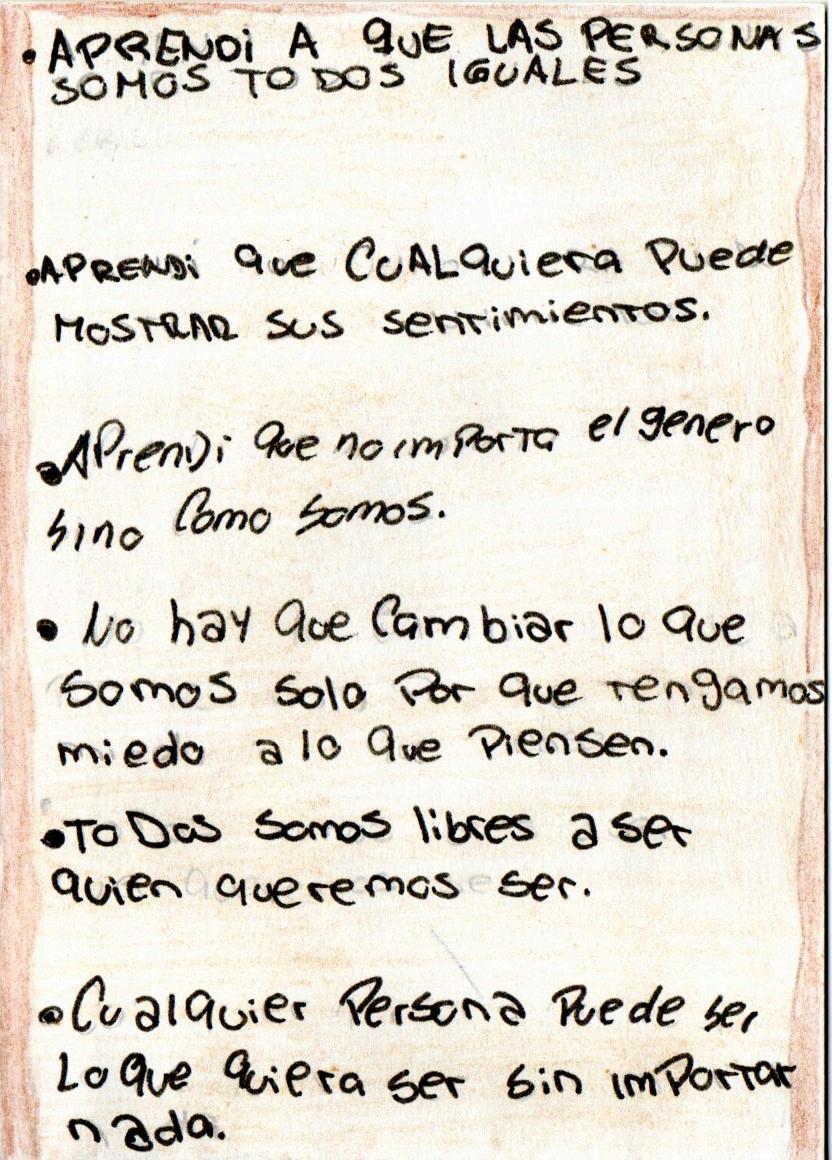 • APRENDI A QUE LAS PERSONAS
SOMOS TODOS IGUALES
• APRENDi que CUALquiera Puede
MOSTRAR SUS sentimientos.
• APrenDi que no imPorTa el genero
sino Como somos.
• No hay que Cambiar lo que
somos solo Por que tengamos
miedo a lo que Piensen.
• ToDos somos libres a ser
quien queremos ser.
• Cualquier Persona Puede ser
Lo que quiera ser sin imPortar
nada.